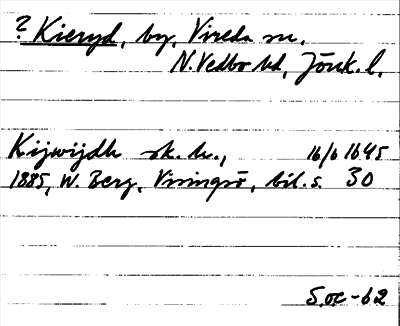 ? Kieryd, by, Vireda sn.
N. Vedbo hd, Jönk. l.
Kijwijdh sk. h., 16/6 1645
1885, W. Berg, Visingsö, bil. s. 30
S.oc-62